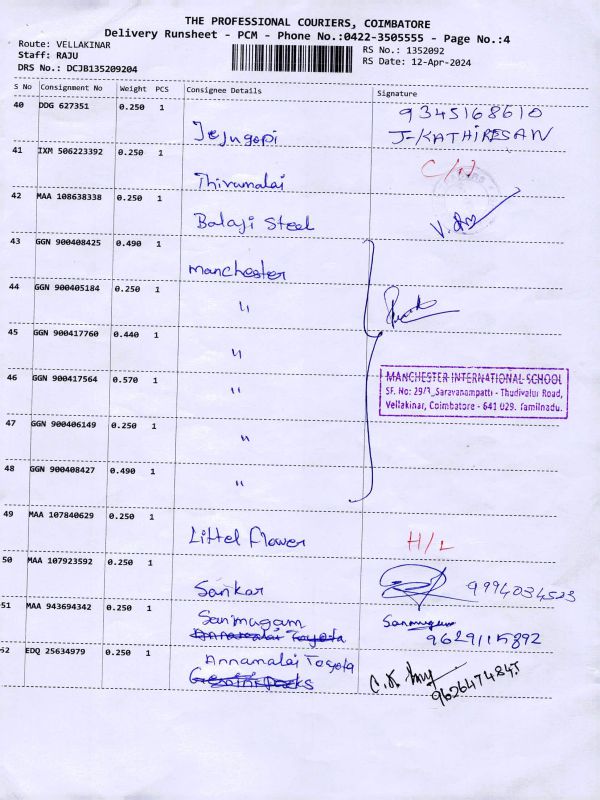 THE PROFESSIONAL COURIERS, COIMBATORE
Delivery Runsheet - PCM - Phone No.:0422-3505555 - Page No.:4
Route: VELLAKINAR
RS No.: 1352092
Staff: RAJU
RS Date: 12-Apr-2024
DRS No.: DCJB135209204
S No Consignment No Weight PCS Consignee Details Signature
40 DDG 627351 0.250 1
9345168610
Jejugopi J-KATHIRESAN
41 IXM 506223392 0.250 1
Thirumalai
42 MAA 108638338 0.250 1
Balaji Steel
43 GGN 900408425 0.490 1
Manchester
44 GGN 900405184 0.250 1
"
45 GGN 900417760 0.440 1
"
46 GGN 900417564 0.570 1
"
MANCHESTER INTERNATIONAL SCHOOL
SF. No: 29/3, Saravanampatti - Thudivalur Road,
Vellakinar, Coimbatore - 641 029. Tamilnadu.
47 GGN 900406149 0.250 1
"
48 GGN 900408427 0.490 1
"
49 MAA 107840629 0.250 1
Littel Flower H/L
50 MAA 107923592 0.250 1
Sankar
51 MAA 943694342 0.250 1
Sanmugam Sanmugam
Annamalai Toyota
52 EDQ 25634979 0.250 1
Annamalai Toyota